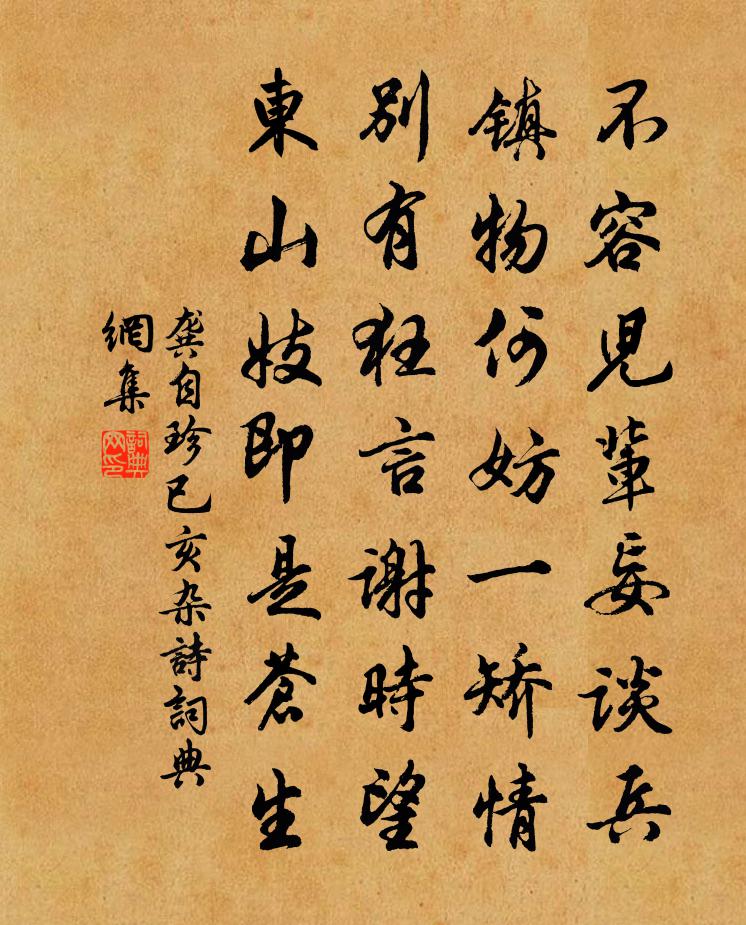 不容児輩妄談兵
鎮物何妨一矯情
別有狂言謝時望
東山妓即是蒼生
龔自珍己亥杂詩詞典
網集
詞典
网印